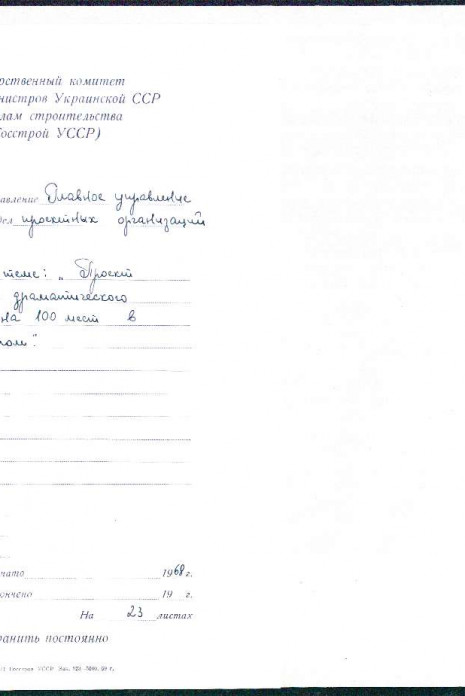 рственный комитет
нистров Украинской ССР
лам строительства
осстрой УССР)
авление Главное управление
дел проектных организаций
теме: „Проект
драматического
на 100 мест в
ком".
чато 1968 г.
ончено 19 г.
На 23 листах
ранить постоянно
Госстроя УССР Зак.